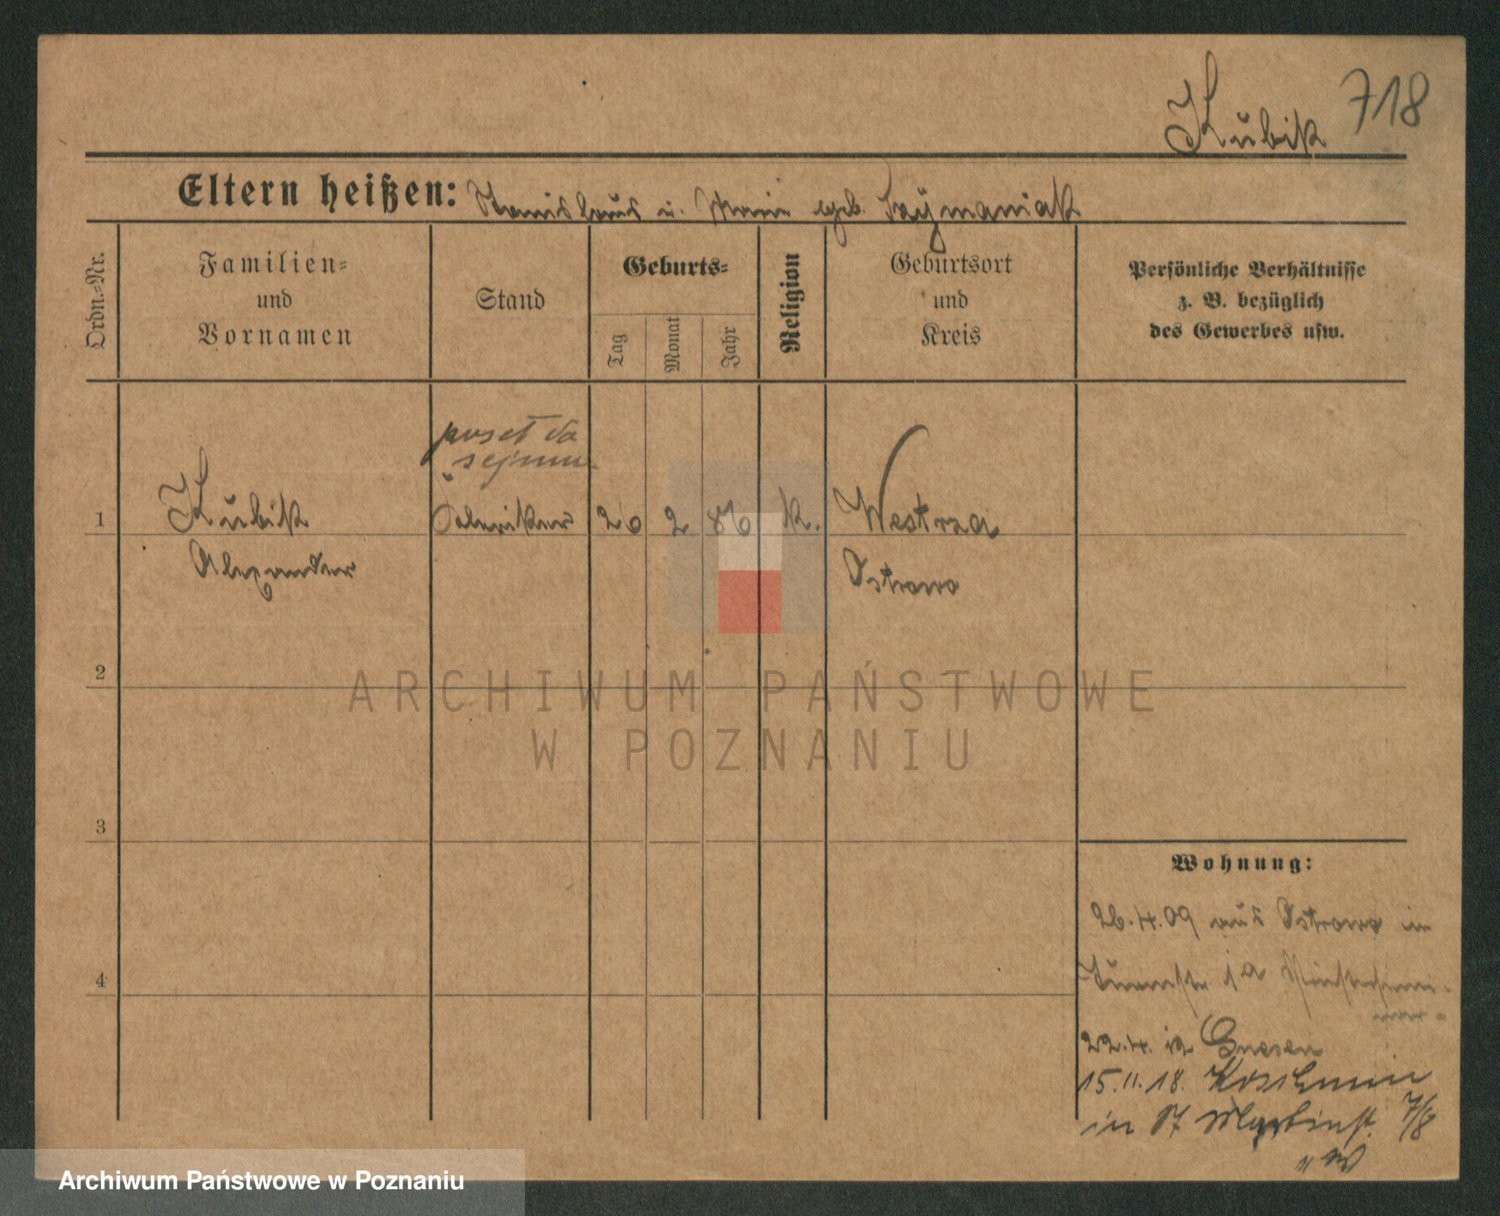 Kubik 718
Eltern heißen: Stanislaus u. Marie geb. Szymaniak
Ordn.-Nr.
Familien-
und
Vornamen
Stand
Geburts-
Tag
Monat
Jahr
Religion
Geburtsort
und
Kreis
Persönliche Verhältnisse
z. B. bezüglich
des Gewerbes usw.
poseł do
sejmu
1
Kubik
Alexander
Kleriker
20 2 86 k.
Westrza
Ostrowo
2
3
4
Wohnung:
26.4.09 aus Ostrowo in
22.4. 12 Gnesen
15.11.18. Koschmin
in St Martinst. 7/8
ARCHIWUM PAŃSTWOWE
W POZNANIU
Archiwum Państwowe w Poznaniu